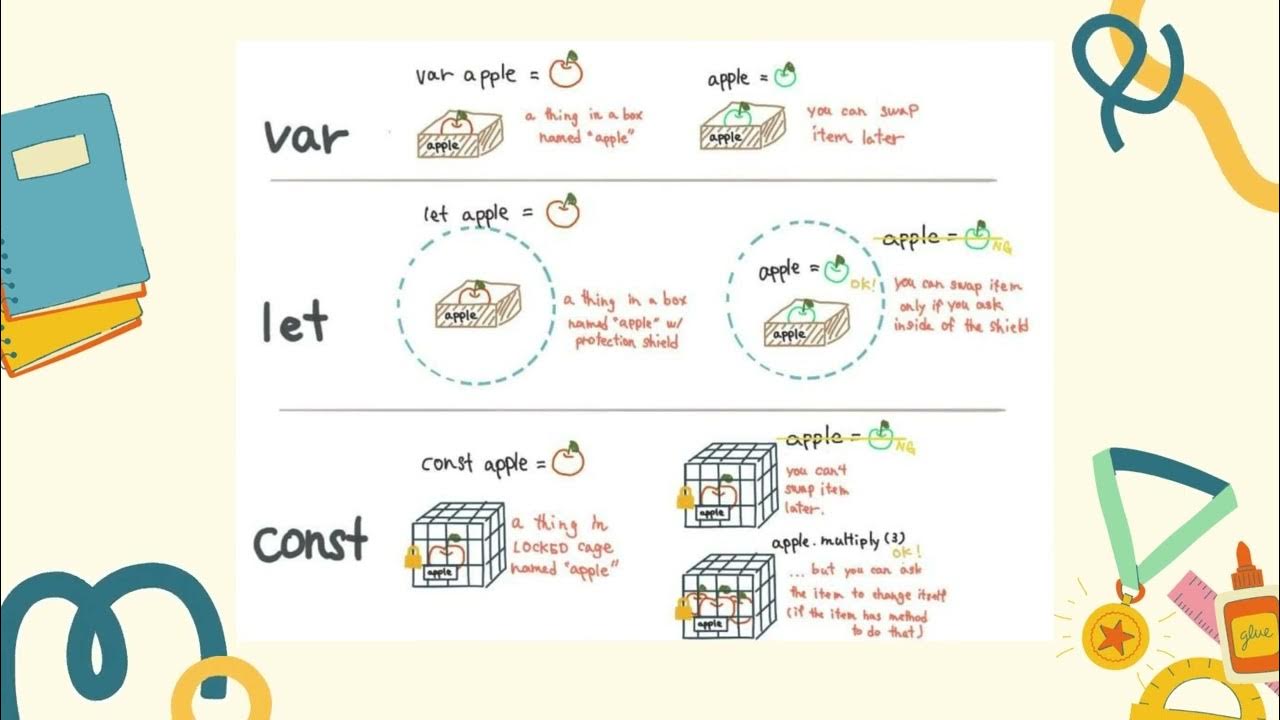 var
var apple =
apple
a thing in a box
named "apple"
apple =
apple
you can swap
item later
let
let apple =
apple
a thing in a box
named "apple" w/
protection shield
apple =
OK!
apple
apple =
NG
you can swap item
only if you ask
inside of the shield
const
const apple =
apple
a thing in
LOCKED cage
named "apple"
apple =
NG
apple
you can't
swap item
later.
apple.multiply(3)
OK!
apple
... but you can ask
the item to change itself
(if the item has method
to do that)
glue